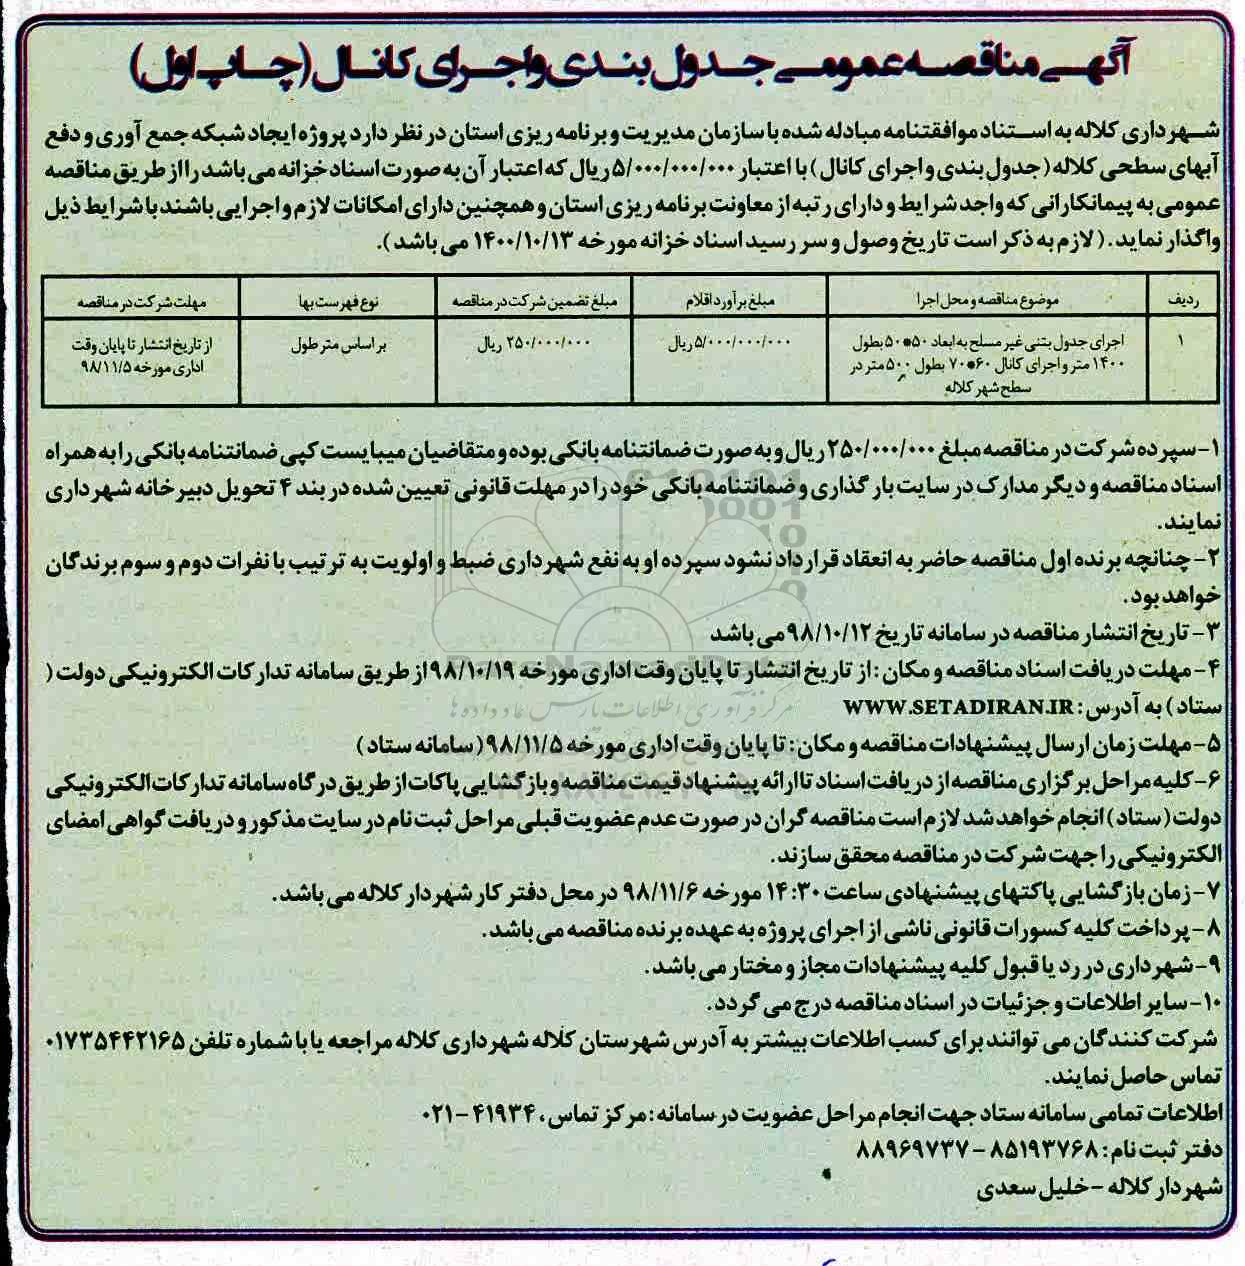 آگهی مناقصه عمومی جدول بندی و اجرای کانال (چاپ اول)
شهرداری کلاله به استناد موافقتنامه مبادله شده با سازمان مدیریت و برنامه ریزی استان در نظر دارد پروژه ایجاد شبکه جمع آوری و دفع
آبهای سطحی کلاله (جدول بندی و اجرای کانال) با اعتبار ۵/۰۰۰/۰۰۰/۰۰۰ ریال که اعتبار آن به صورت اسناد خزانه می باشد را از طریق مناقصه
عمومی به پیمانکارانی که واجد شرایط و دارای رتبه از معاونت برنامه ریزی استان و همچنین دارای امکانات لازم و اجرایی باشند با شرایط ذیل
واگذار نماید. (لازم به ذکر است تاریخ وصول و سر رسید اسناد خزانه مورخه ۱۴۰۰/۱۰/۱۳ می باشد).
ردیف موضوع مناقصه و محل اجرا مبلغ برآورد اقلام مبلغ تضمین شرکت در مناقصه نوع فهرست بها مهلت شرکت در مناقصه
۱ اجرای جدول بتنی غیر مسلح به ابعاد ۵۰*۵۰ بطول ۵/۰۰۰/۰۰۰/۰۰۰ ریال ۲۵۰/۰۰۰/۰۰۰ ریال بر اساس متر طول از تاریخ انتشار تا پایان وقت
۱۴۰۰ متر و اجرای کانال ۶۰*۷۰ بطول ۵۰۰ متر در اداری مورخه ۹۸/۱۱/۵
سطح شهر کلاله
۱-سپرده شرکت در مناقصه مبلغ ۲۵۰/۰۰۰/۰۰۰ ریال و به صورت ضمانتنامه بانکی بوده و متقاضیان میبایست کپی ضمانتنامه بانکی را به همراه
اسناد مناقصه و دیگر مدارک در سایت بارگذاری و ضمانتنامه بانکی خود را در مهلت قانونی تعیین شده در بند ۴ تحویل دبیرخانه شهرداری
نمایند.
۲- چنانچه برنده اول مناقصه حاضر به انعقاد قرارداد نشود سپرده او به نفع شهرداری ضبط و اولویت به ترتیب با نفرات دوم و سوم برندگان
خواهد بود.
۳- تاریخ انتشار مناقصه در سامانه تاریخ ۹۸/۱۰/۱۲ می باشد
۴- مهلت دریافت اسناد مناقصه و مکان: از تاریخ انتشار تا پایان وقت اداری مورخه ۹۸/۱۰/۱۹ از طریق سامانه تدارکات الکترونیکی دولت (
ستاد) به آدرس: WWW.SETADIRAN.IR
۵- مهلت زمان ارسال پیشنهادات مناقصه و مکان: تا پایان وقت اداری مورخه ۹۸/۱۱/۵ (سامانه ستاد)
۶- کلیه مراحل برگزاری مناقصه از دریافت اسناد تا ارائه پیشنهاد قیمت مناقصه و بازگشایی پاکات از طریق درگاه سامانه تدارکات الکترونیکی
دولت (ستاد) انجام خواهد شد لازم است مناقصه گران در صورت عدم عضویت قبلی مراحل ثبت نام در سایت مذکور و دریافت گواهی امضای
الکترونیکی را جهت شرکت در مناقصه محقق سازند.
۷- زمان بازگشایی پاکتهای پیشنهادی ساعت ۱۴:۳۰ مورخه ۹۸/۱۱/۶ در محل دفتر کار شهردار کلاله می باشد.
۸- پرداخت کلیه کسورات قانونی ناشی از اجرای پروژه به عهده برنده مناقصه می باشد.
۹- شهرداری در رد یا قبول کلیه پیشنهادات مجاز و مختار می باشد.
۱۰- سایر اطلاعات و جزئیات در اسناد مناقصه درج می گردد.
شرکت کنندگان می توانند برای کسب اطلاعات بیشتر به آدرس شهرستان کلاله شهرداری کلاله مراجعه یا با شماره تلفن ۰۱۷۳۵۴۴۲۱۶۵
تماس حاصل نمایند.
اطلاعات تمامی سامانه ستاد جهت انجام مراحل عضویت در سامانه: مرکز تماس، ۴۱۹۳۴-۰۲۱
دفتر ثبت نام: ۸۵۱۹۳۷۶۸ - ۸۸۹۶۹۷۳۷
شهردار کلاله - خلیل سعدی